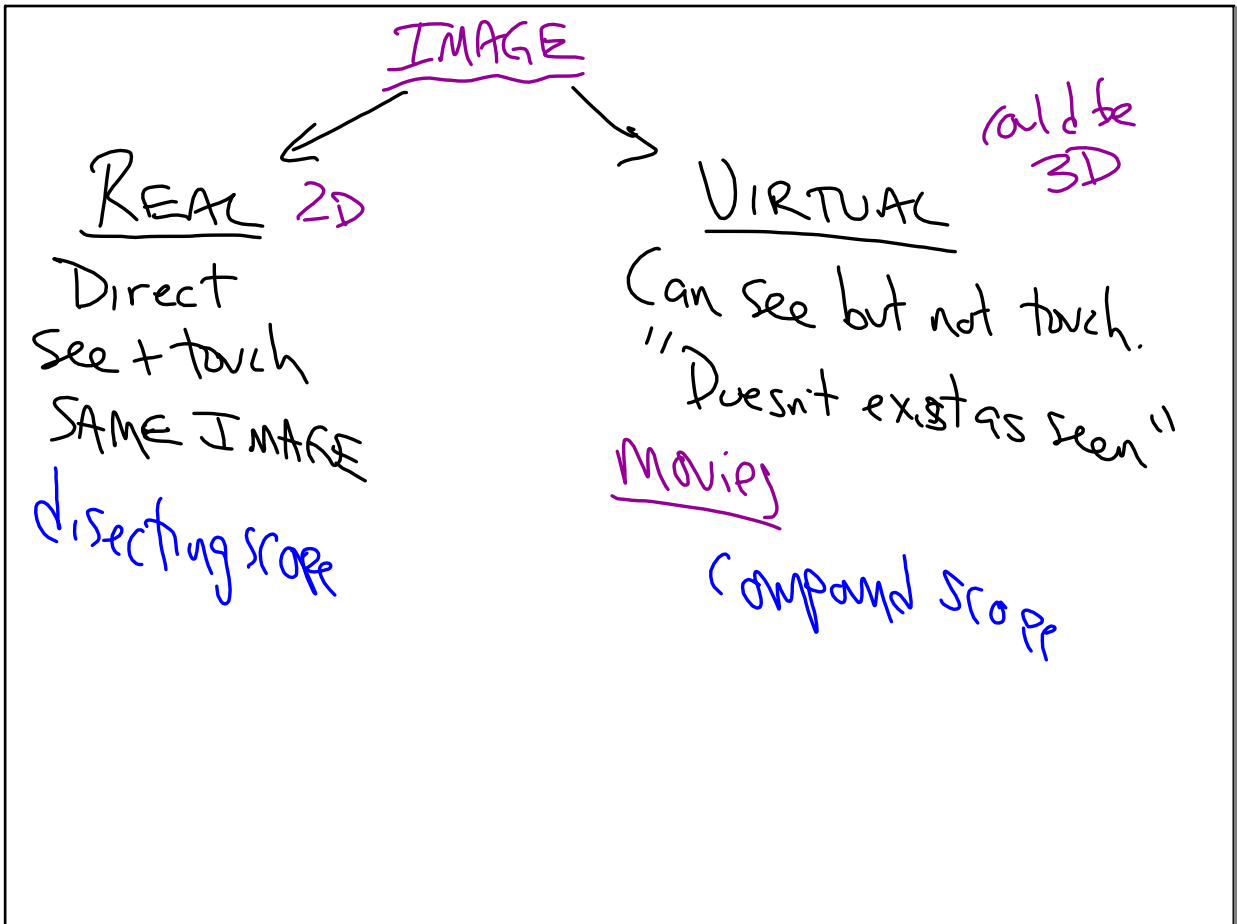 IMAGE
REAL 2D
Direct
See + touch
SAME IMAGE
disecting scope
could be
3D
VIRTUAL
Can see but not touch.
"Doesn't exist as seen"
Movies
Compound scope